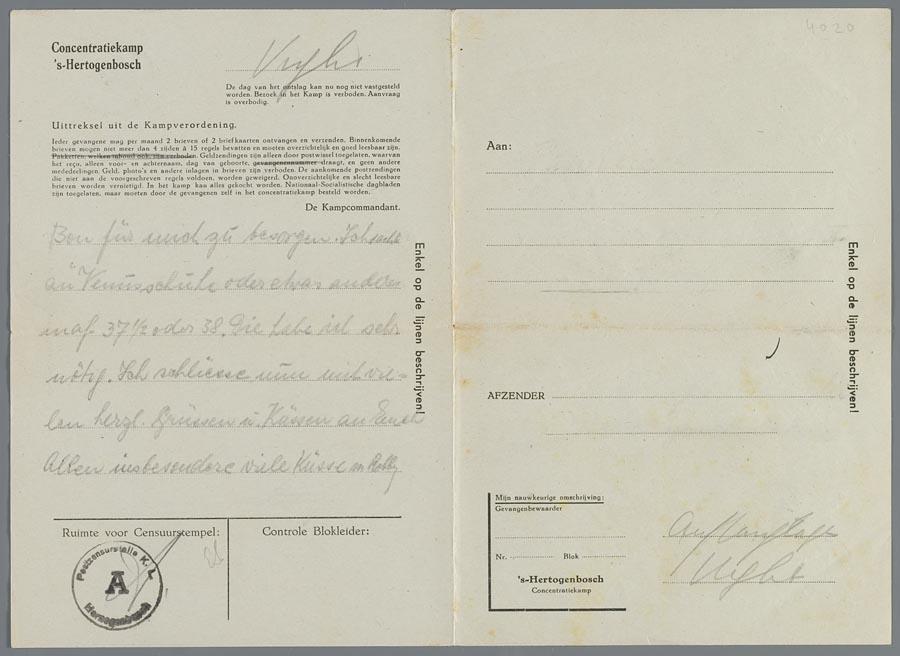 Concentratiekamp
's-Hertogenbosch
Vught
De dag van het ontslag kan nu nog niet vastgesteld
worden. Bezoek in het Kamp is verboden. Aanvraag
is overbodig.
Uittreksel uit de Kampverordening.
Ieder gevangene mag per maand 2 brieven of 2 briefkaarten ontvangen en verzenden. Binnenkomende
brieven mogen niet meer dan 4 zijden à 15 regels bevatten en moeten overzichtelijk en goed leesbaar zijn.
Pakketten, welken inhoud ook, zijn verboden. Geldzendingen zijn alleen door postwissel toegelaten, waarvan
het reçu, alleen voor- en achternaam, dag van geboorte, gevangenennummer draagt, en geen andere
mededeelingen. Geld, photo's en andere inlagen in brieven zijn verboden. De aankomende postzendingen
die niet aan de voorgeschreven regels voldoen, worden geweigerd. Onoverzichtelijke en slecht leesbare
brieven worden vernietigd. In het kamp kan alles gekocht worden. Nationaal-Socialistische dagbladen
zijn toegelaten, maar moeten door de gevangenen zelf in het concentratiekamp besteld worden.
De Kampcommandant.
Bon für mich zu besorgen. Ich
an schuhe oder etwas anderes
37 1/2 oder 38. Die habe ich sehr
nötig. Ich schliesse nun mit vie-
len herzl. Grüssen u. Küssen an Euch
Allen insbesondere viele Küsse
Enkel op de lijnen beschrijven!
Ruimte voor Censuurstempel:
Controle Blokleider:
Postzensurstelle K. L.
A
Herzogenbusch
4020
Aan:
Enkel op de lijnen beschrijven!
AFZENDER
Mijn nauwkeurige omschrijving:
Gevangenbewaarder
Nr.
Blok
's-Hertogenbosch
Concentratiekamp
Vught